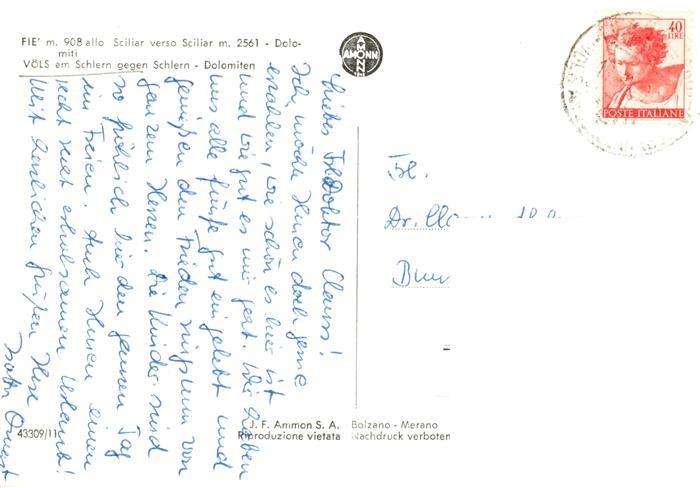 FIE' m. 908 allo Sciliar verso Sciliar m. 2561 - Dolo-
miti
VÖLS am Schlern gegen Schlern - Dolomiten
AMONN
40
LIRE
POSTE ITALIANE
Liebes Doktor Clauss!
Ich möchte Ihnen doch gerne
erzählen, wie schön es hier ist
und wie gut es mir geht. Wir haben
uns alle fünfe gut eingelebt und
genießen den Frieden ringsum von
ganzem Herzen. Die Kinder sind
so fröhlich hier den ganzen Tag
im Freien. Auch Ihnen einen
recht recht erholsamen Urlaub!
Mit herzlichen Grüßen Ihre
Frl.
Dr.
43309/11
J. F. Ammon S. A. Bolzano - Merano
Riproduzione vietata Nachdruck verboten